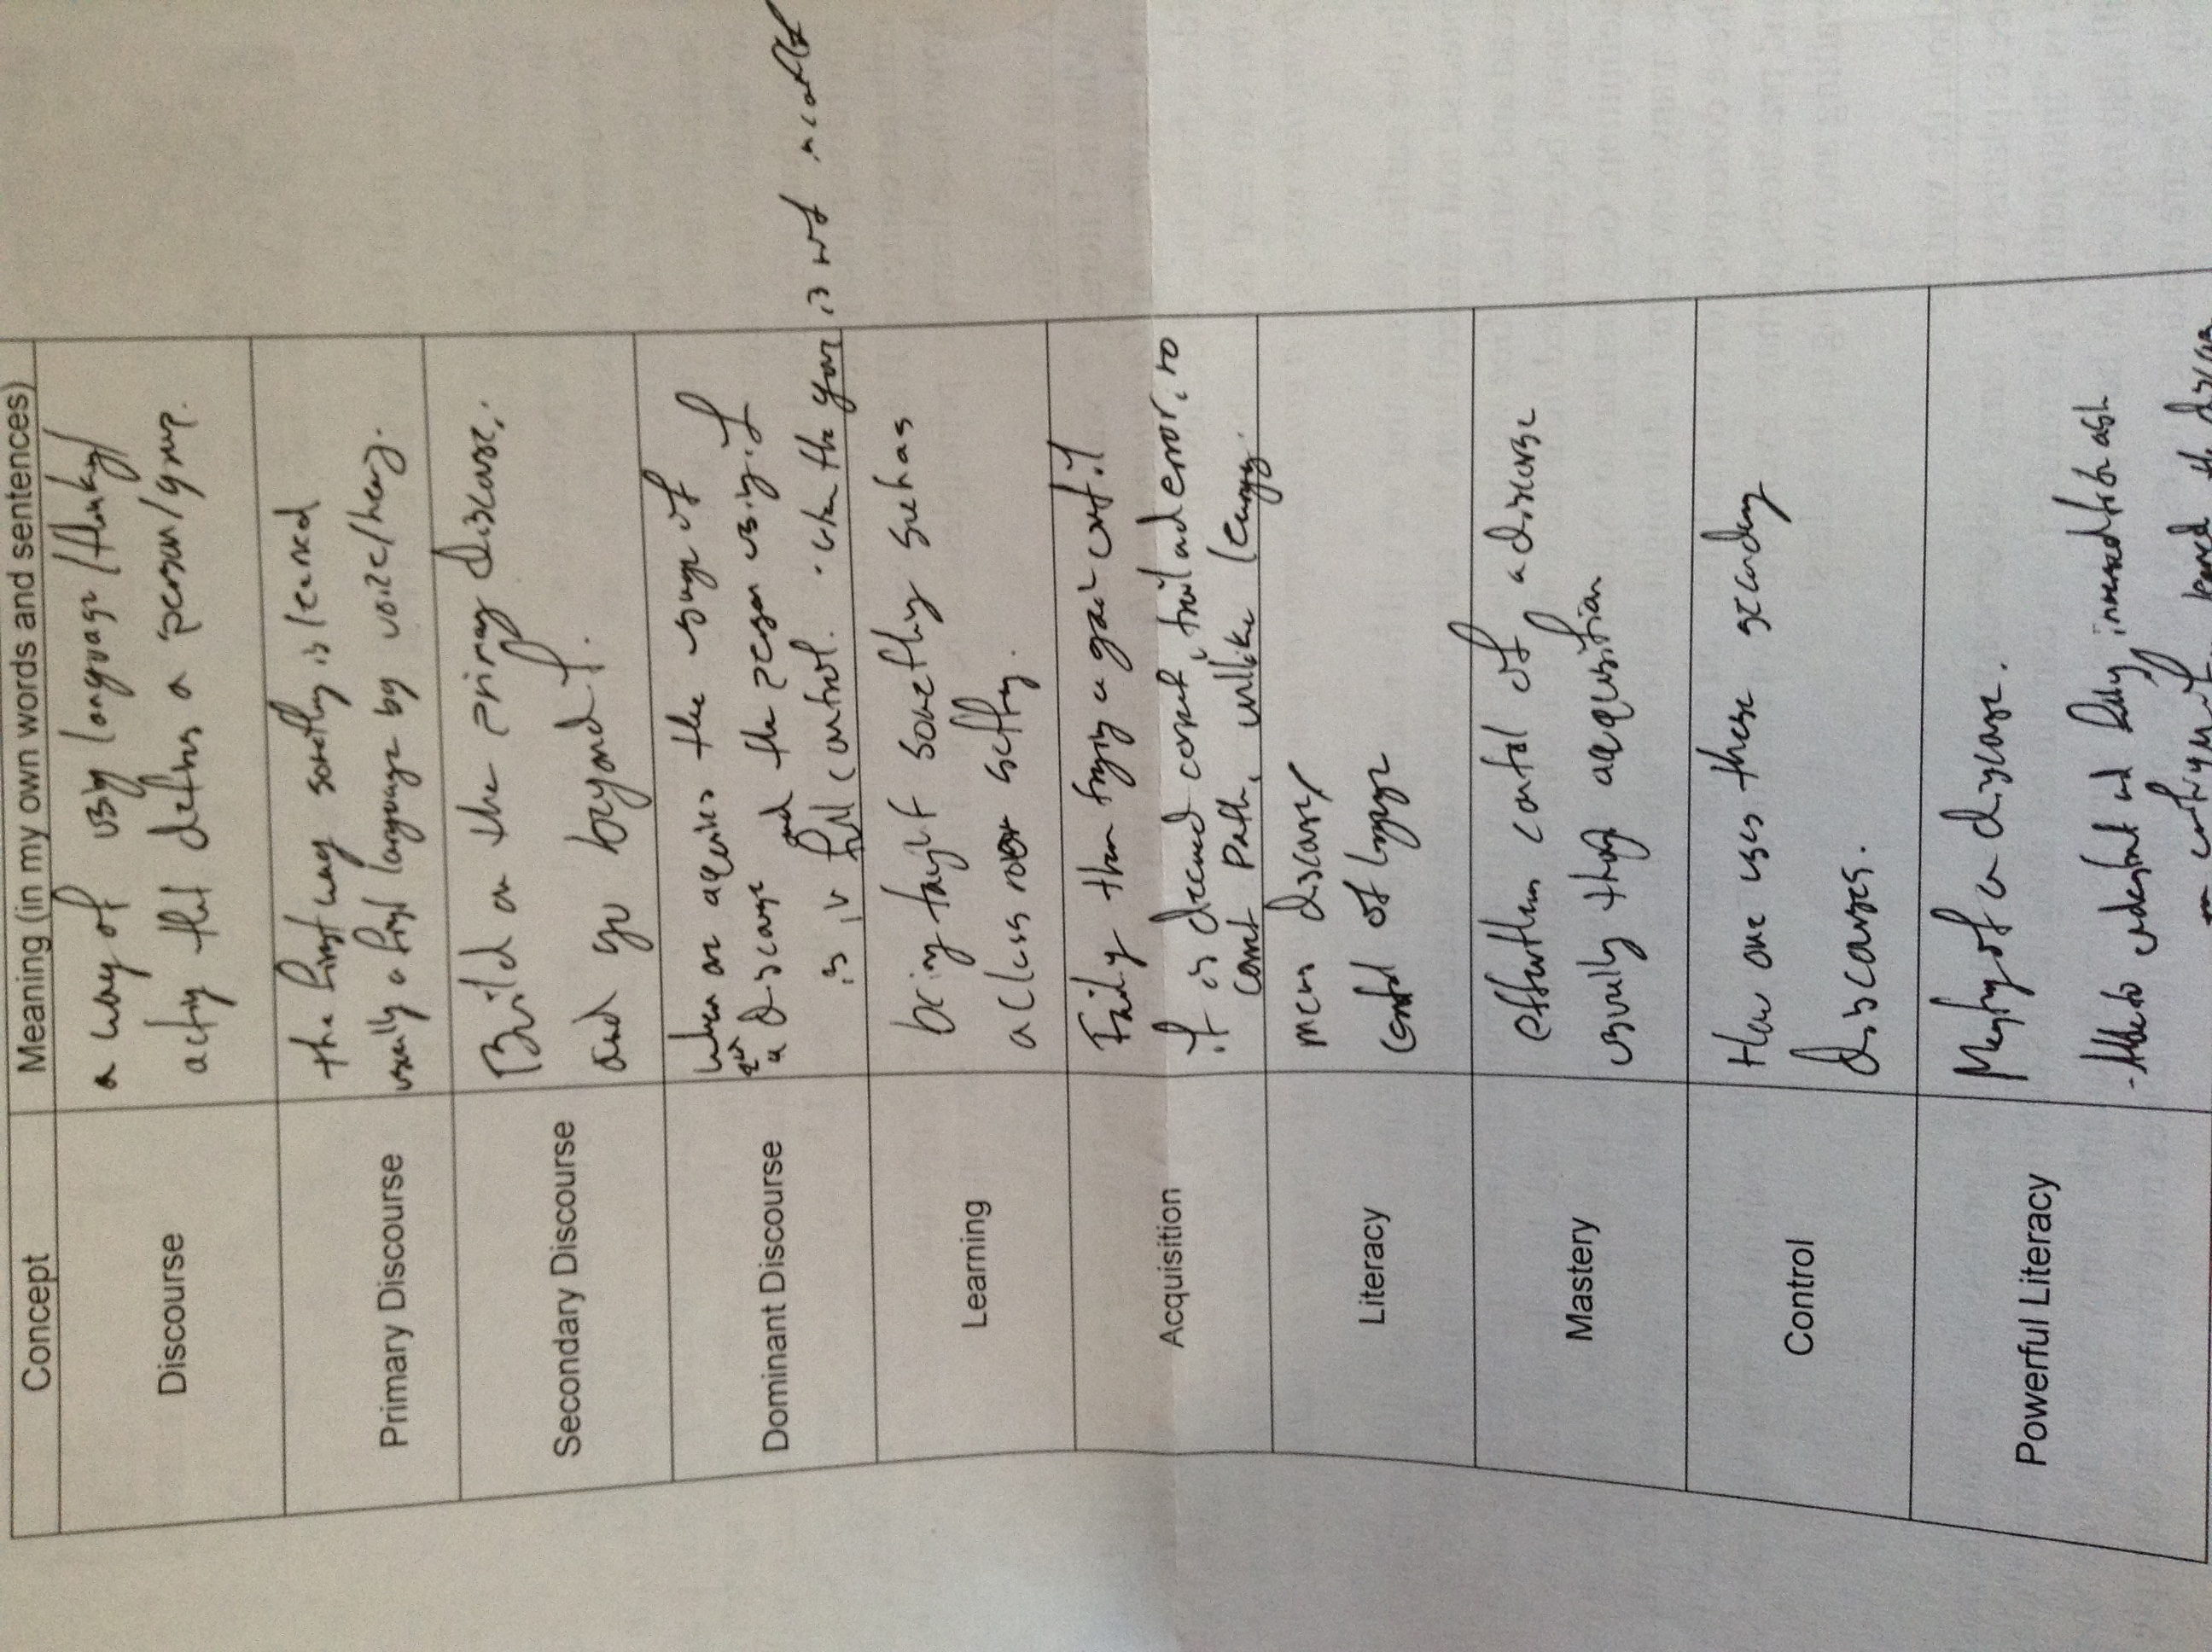 Concept
Meaning (in my own words and sentences)
Discourse
a way of using language/thinking/
acting that defines a person/group.
Primary Discourse
the first way something is learned
usually a first language by voice/hearing.
Secondary Discourse
Build on the primary discourse,
and go beyond it.
Dominant Discourse
when one acquires the usage of
a discourse and the person using it
is in full control. · when the is not
Learning
being taught something such as
a class room setting.
Acquisition
Failing then trying again until
it is deemed correct, trail and error, no
correct path, unllike learning.
Literacy
discourse/
control of language
Mastery
effortless control of a discourse
usually through acqquisition
Control
How one uses these secondary
discourses.
Powerful Literacy
Mastery of a discourse.
-Able to understand and fully
it, learned the discourse